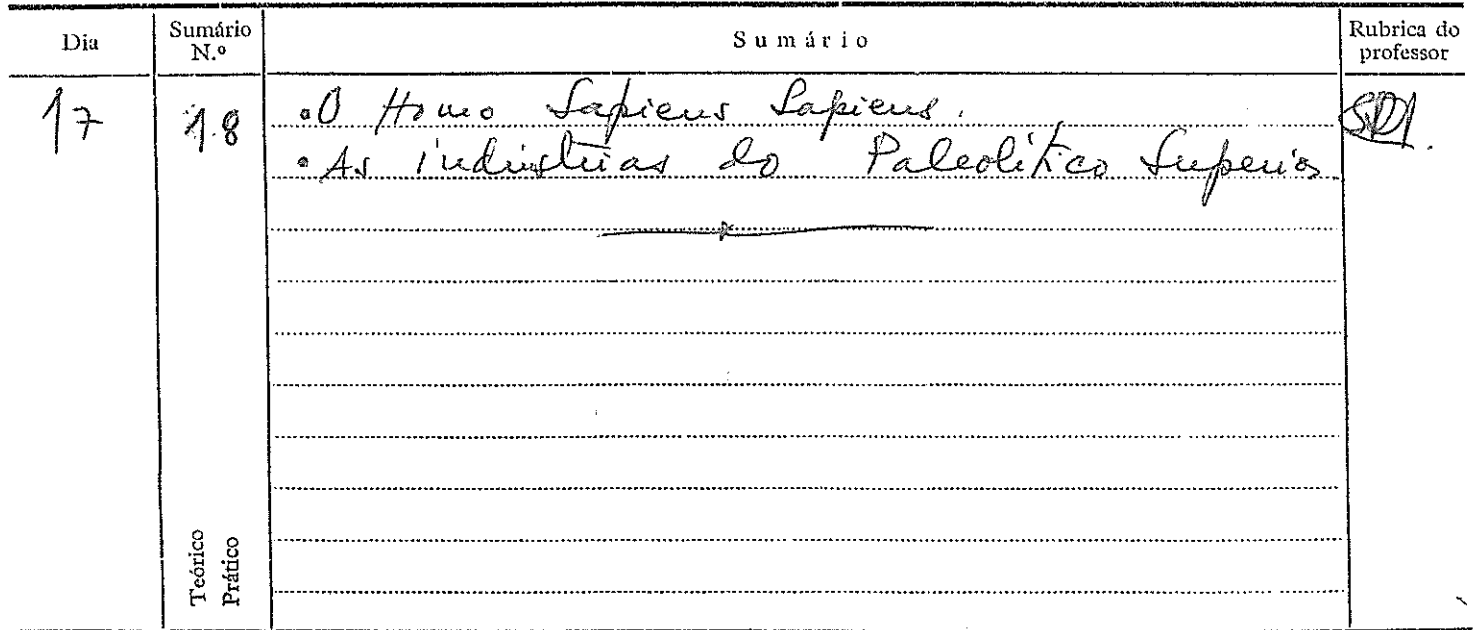 Dia
Sumário N.º
Sumário
Rubrica do professor
17
18
• O Homo Sapiens Sapiens.
• As indústrias do Paleolítico Superior
Teórico
Prático